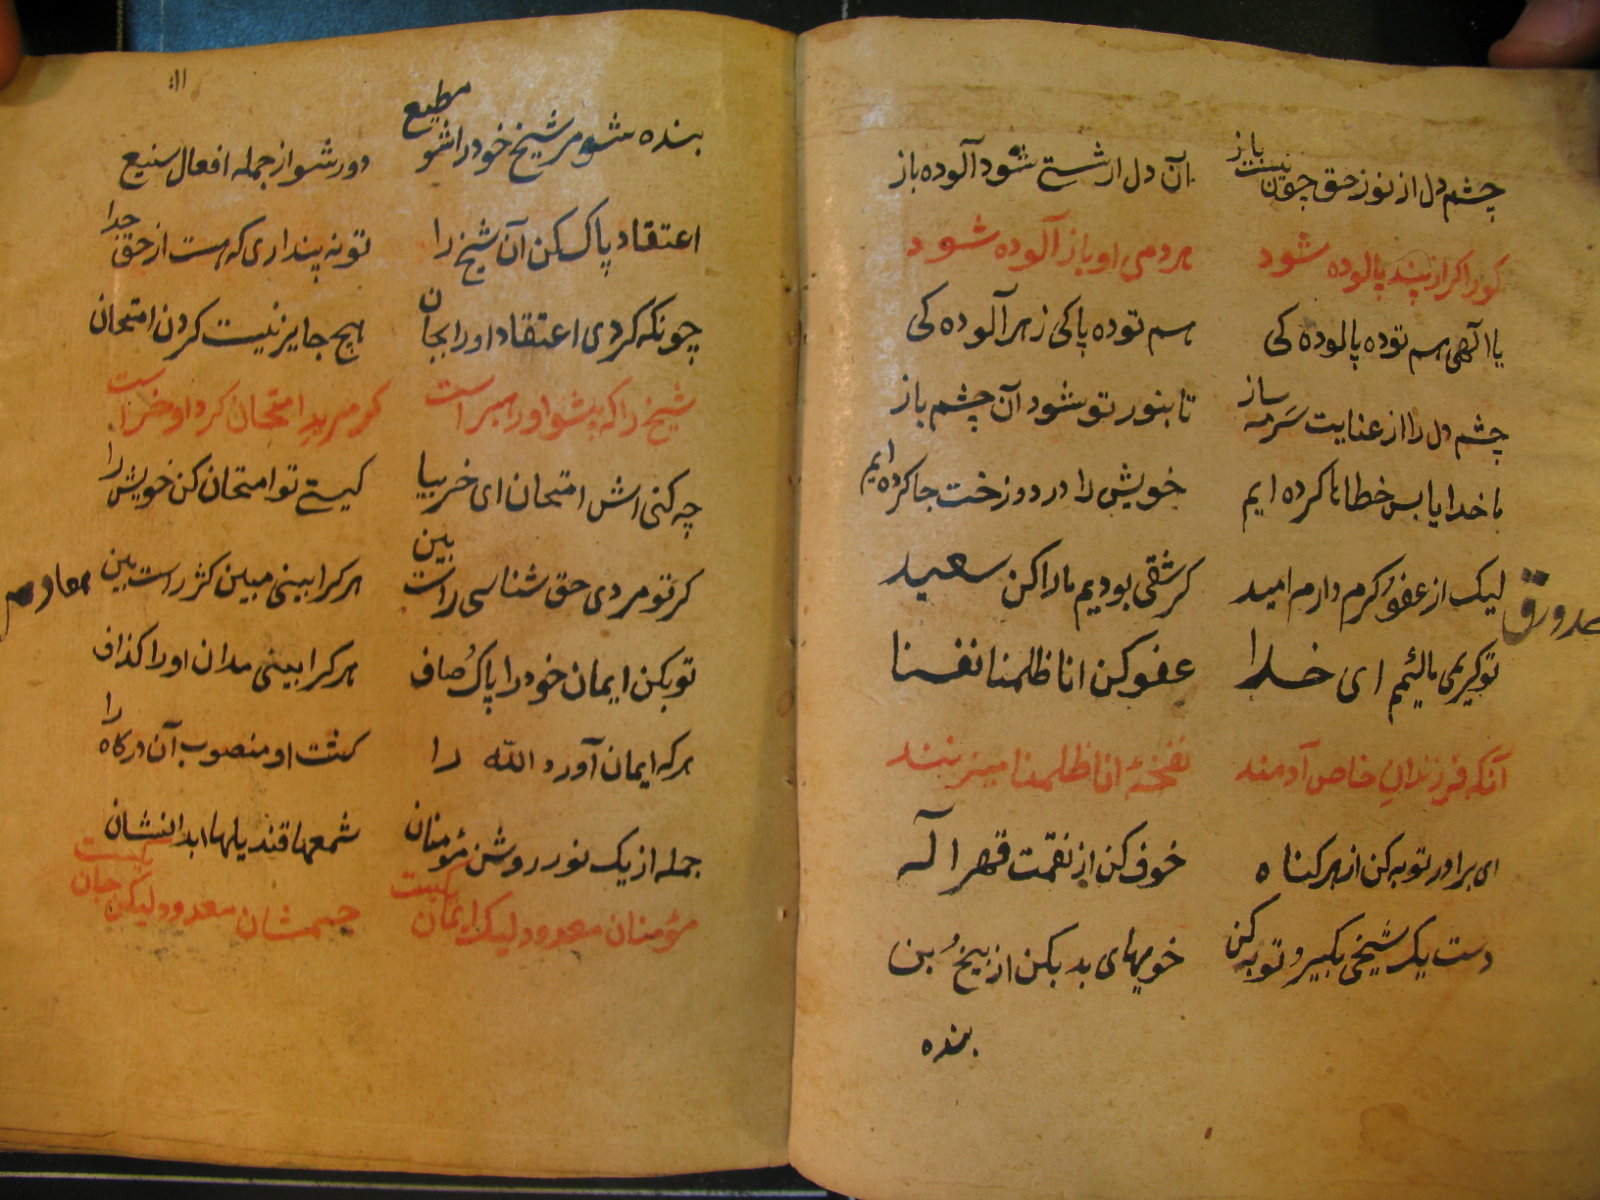 چشم دل از نور حق چون نیست باز آن دل ار شستی شود آلوده باز
کور اکر از پند پالوده شود هر دمی او باز آلوده شود
یا الهی هم تو ده پالوده کی هم تو ده پاکی ز هر آلوده کی
چشم دل را از عنایت سرمه ساز تا بنور تو شود آن چشم باز
با خدایا بس خطاها کرده ایم خویش را در دوزخت جا کرده ایم
لیک از عفو و کرم دارم امید کر شقی بودیم ما را کن سعید
تو کریمی ما لئیمم ای خدا عفو کن انا ظلمنا نفسنا
آنکه فرزندان خاص آدمند نفخهٔ انا ظلمنا میزنند
ای برادر توبه کن از هر کناه خوف کن از نقمت قهر اله
دست یک شیخی بکیر و توبه کن خویهای بد بکن از بیخ و بن
بنده
بنده شو مر شیخ خود را شو مطیع دور شو از جمله افعال سنیع
اعتقاد پاک کن آن شیخ را تو نه پنداری که هست از حق جدا
چونکه کردی اعتقاد او را بجان هیج جایز نیست کردن امتحان
شیخ را که پیشوا و رهبر است کر مریدی امتحان کرد او خر است
چه کنی اش امتحان ای خر بیا کیستی تو امتحان کن خویش را
کر تو مردی حق شناسی راست بین هر کرا بینی مبین کژ راست بین
تو بکن ایمان خود را پاک و صاف هر کرا بینی مدان او را کذاف
هر که ایمان آورد الله را کشت او منصوب آن درکاه را
جمله از یک نور روشن مؤمنان شمعها قندیلها ابدانشان
مؤمنان معدود لیک ایمان یکیست جسمشان معدود لیکن جان یکیست